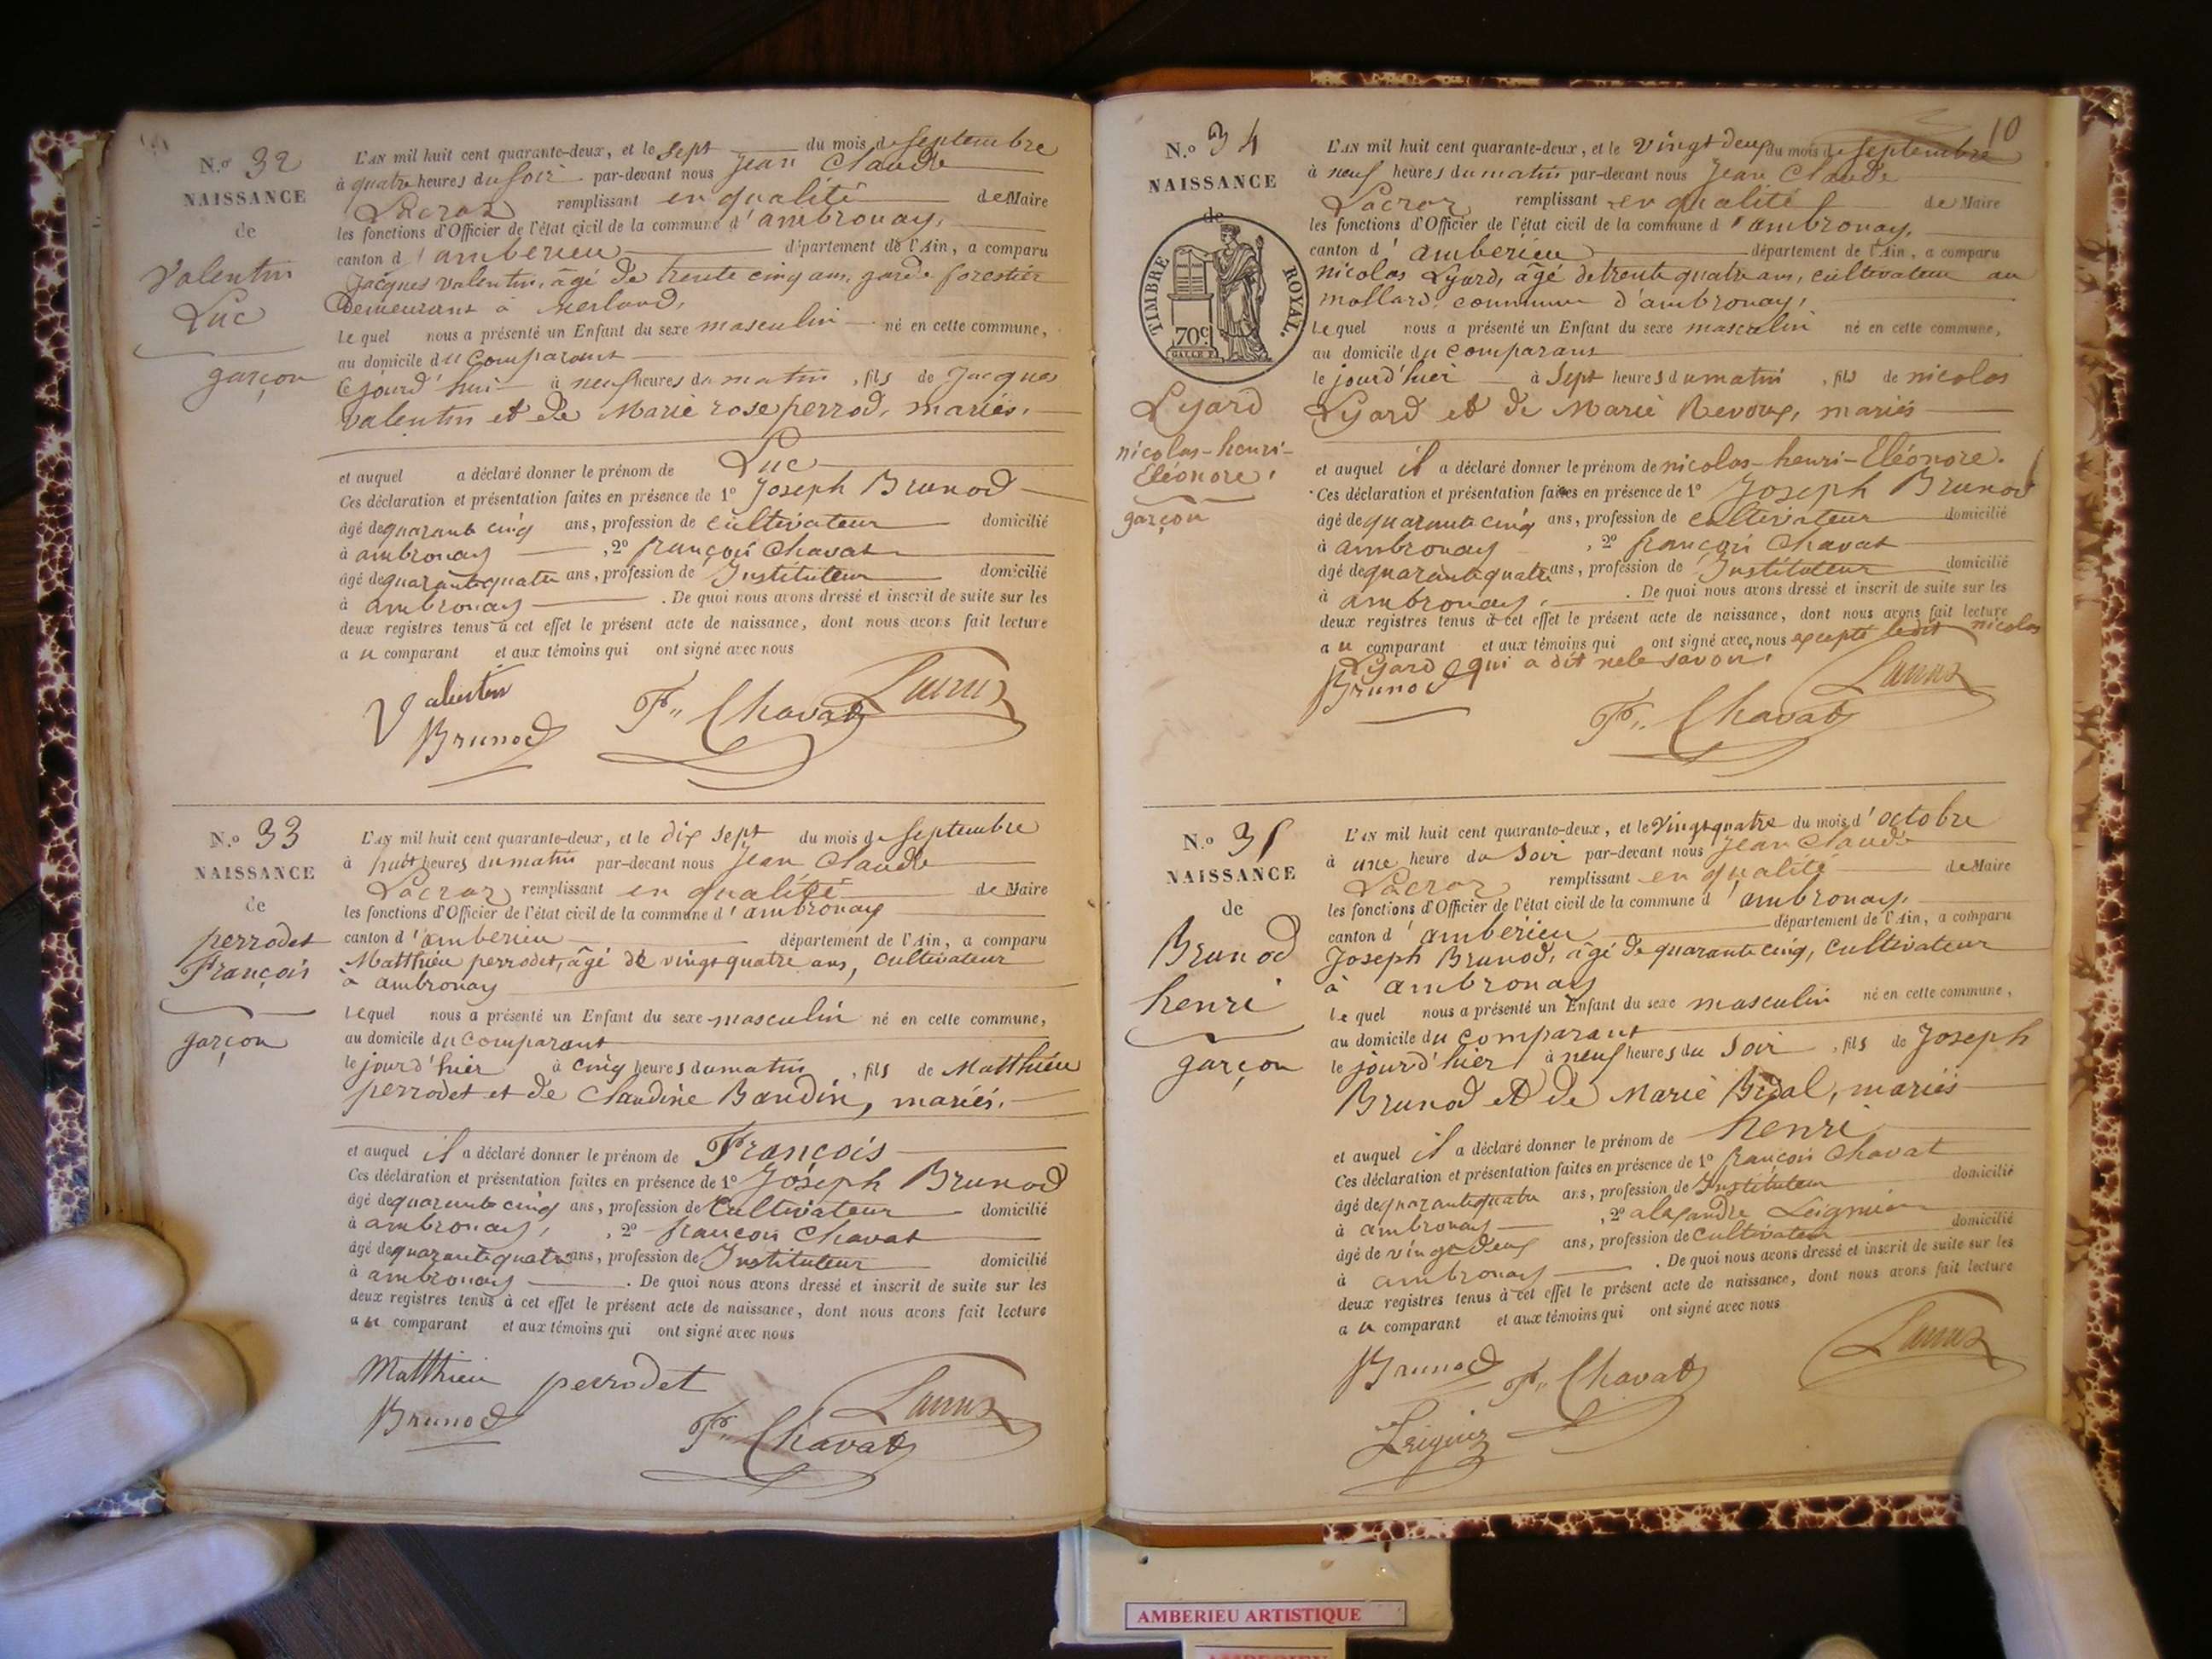 N.º 32
NAISSANCE
de
Valentin
Luc
garçon
L'AN mil huit cent quarante-deux, et le sept du mois de septembre
à quatre heures du soir par-devant nous Jean Claude
Lacroz remplissant en qualité de Maire
les fonctions d'Officier de l'état civil de la commune d'ambronay,
canton d'amberieu département de l'Ain, a comparu
Jacques Valentin, âgé de trente cinq ans, garde forestier
demeurant à merland,
lequel nous a présenté un Enfant du sexe masculin né en cette commune,
au domicile du comparant
cejourd'hui à neuf heures du matin, fils de Jacques
Valentin et de Marie rose perrod, mariés.
et auquel a déclaré donner le prénom de Luc
Ces déclaration et présentation faites en présence de 1º Joseph Brunod
âgé de quarante cinq ans, profession de cultivateur domicilié
à ambronay, 2º françois Chavat
âgé de quarante quatre ans, profession de Instituteur domicilié
à ambronay. De quoi nous avons dressé et inscrit de suite sur les
deux registres tenus à cet effet le présent acte de naissance, dont nous avons fait lecture
au comparant et aux témoins qui ont signé avec nous
Valentin
Brunod F. Chavat
N.º 33
NAISSANCE
de
perrodet
François
garçon
L'AN mil huit cent quarante-deux, et le dix sept du mois de septembre
à huit heures du matin par-devant nous Jean Claude
Lacroz remplissant en qualité de Maire
les fonctions d'Officier de l'état civil de la commune d'ambronay
canton d'amberieu département de l'Ain, a comparu
Matthieu perrodet, âgé de vingt quatre ans, cultivateur
à ambronay
lequel nous a présenté un Enfant du sexe masculin né en cette commune,
au domicile du comparant
le jourd'hier à cinq heures du matin, fils de Matthieu
perrodet et de Claudine Baudin, mariés.
et auquel il a déclaré donner le prénom de François
Ces déclaration et présentation faites en présence de 1º Joseph Brunod
âgé de quarante cinq ans, profession de Cultivateur domicilié
à ambronay, 2º françois Chavat
âgé de quarante quatre ans, profession de Instituteur domicilié
à ambronay. De quoi nous avons dressé et inscrit de suite sur les
deux registres tenus à cet effet le présent acte de naissance, dont nous avons fait lecture
au comparant et aux témoins qui ont signé avec nous
Matthieu perrodet
Brunod F. Chavat
10
N.º 34
NAISSANCE
de
TIMBRE ROYAL.
70c
Lyard
nicolas-henri-
Eléonore,
garçon
L'AN mil huit cent quarante-deux, et le vingt deux du mois de septembre
à neuf heures du matin par-devant nous Jean Claude
Lacroz remplissant en qualité de Maire
les fonctions d'Officier de l'état civil de la commune d'ambronay,
canton d'amberieu département de l'Ain, a comparu
nicolas Lyard, âgé de trente quatre ans, cultivateur au
mollard, commune d'ambronay,
lequel nous a présenté un Enfant du sexe masculin né en cette commune,
au domicile du comparant
le jourd'hier à sept heures du matin, fils de nicolas
Lyard et de Marie Revoux, mariés
et auquel il a déclaré donner le prénom de nicolas-henri-Eléonore.
Ces déclaration et présentation faites en présence de 1º Joseph Brunod
âgé de quarante cinq ans, profession de cultivateur domicilié
à ambronay, 2º françois Chavat
âgé de quarante quatre ans, profession de Instituteur domicilié
à ambronay. De quoi nous avons dressé et inscrit de suite sur les
deux registres tenus à cet effet le présent acte de naissance, dont nous avons fait lecture
au comparant et aux témoins qui ont signé avec nous excepté ledit nicolas
Lyard qui a dit ne le savoir.
Brunod
F. Chavat
N.º 35
NAISSANCE
de
Brunod
henri
garçon
L'AN mil huit cent quarante-deux, et le vingt quatre du mois d'octobre
à une heure du soir par-devant nous Jean Claude
Lacroz remplissant en qualité de Maire
les fonctions d'Officier de l'état civil de la commune d'ambronay,
canton d'amberieu département de l'Ain, a comparu
Joseph Brunod, âgé de quarante cinq, cultivateur
à ambronay
lequel nous a présenté un Enfant du sexe masculin né en cette commune,
au domicile du comparant
le jourd'hier à neuf heures du soir, fils de Joseph
Brunod et de Marie Bidal, mariés
et auquel il a déclaré donner le prénom de henri
Ces déclaration et présentation faites en présence de 1º françois Chavat
âgé de quarante quatre ans, profession de Instituteur domicilié
à ambronay, 2º alexandre
âgé de vingt deux ans, profession de cultivateur domicilié
à ambronay. De quoi nous avons dressé et inscrit de suite sur les
deux registres tenus à cet effet le présent acte de naissance, dont nous avons fait lecture
au comparant et aux témoins qui ont signé avec nous
Brunod F. Chavat
AMBERIEU ARTISTIQUE